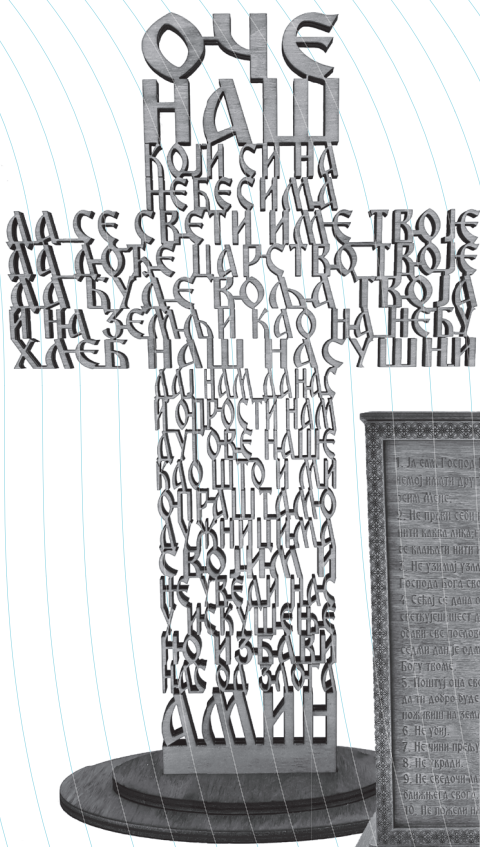 ОЧЕ
НАШ
КОЈИ СИ НА
НЕБЕСИМА
ДА СЕ СВЕТИ ИМЕ ТВОЈЕ
ДА ДОЂЕ ЦАРСТВО ТВОЈЕ
ДА БУДЕ ВОЉА ТВОЈА
И НА ЗЕМЉИ КАО НА НЕБУ
ХЛЕБ НАШ НАСУШНИ
ДАЈ НАМ ДАНАС
И ОПРОСТИ НАМ
ДУГОВЕ НАШЕ
КАО ШТО И МИ
ОПРАШТАМО
ДУЖНИЦИМА
СВОЈИМ И
НЕ УВЕДИ НАС
У ИСКУШЕЊЕ
НО ИЗБАВИ
НАС ОД ЗЛОГА
АМИН
1. Ја сам Господ
немој имати дру
осим Мене.
2. Не прави себи
нити каква лика
се клањати нити
3. Не узимај узалуд
Господа Бога сво
4. Сећај се дана о
светкујеш шест д
обави све послове
седми дан је одм
Богу твоме.
5. Поштуј оца сво
да ти добро буде
поживиш на земљ
6. Не убиј.
7. Не чини прељу
8. Не укради.
9. Не сведочи ла
ближњега свога
10. Не пожели н